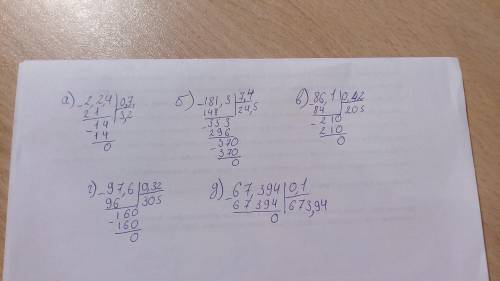 а) -2,24 | 0,7
21 | 3,2
-14
14
0
б) -181,3 | 7,4
148 | 24,5
-333
296
-370
370
0
в) -86,1 | 0,42
84 | 205
-210
210
0
г) -97,6 | 0,32
96 | 305
-160
160
0
д) -67,394 | 0,1
67394 | 673,94
0